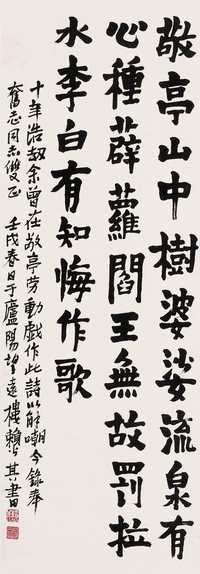 敬亭山中樹婆娑流泉有
心種薜蘿閻王無故罰拉
水李白有知悔作歌
十年浩劫余曾在敬亭勞動戲作此詩以解嘲今錄奉
奮志同志雙正 壬戌春日于廬陽望遠樓賴少其書